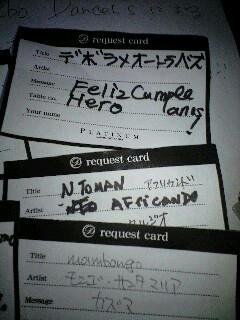 Dancer's
request card
Title デボラメオートラベズ
Artist
Message Feliz Cumple
Table no. Hero anıs!
Your name
PLATINUM
request card
Title N. TOMAN アフリカンド
Artist AFRICANDO
request card
Title mambongo
Artist モンゴ・サンタマリア
Message カズマ